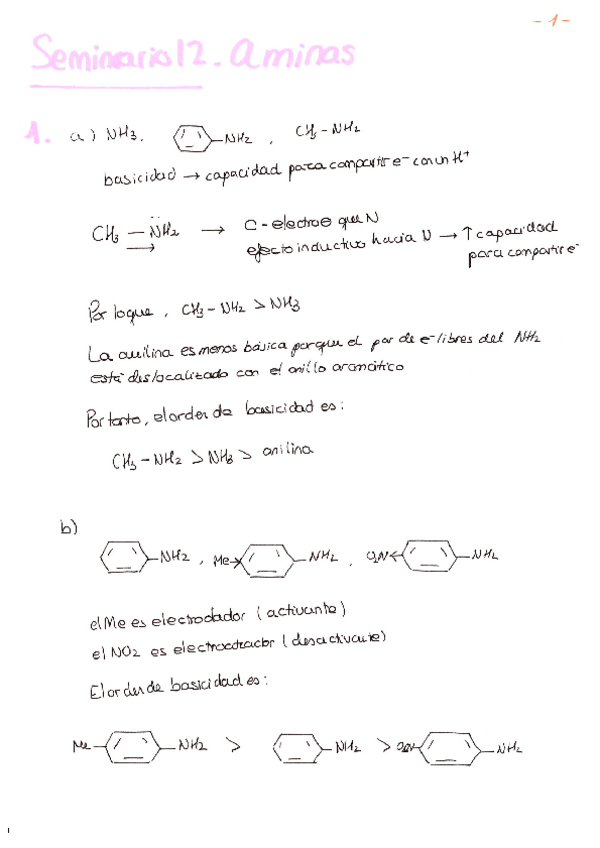 - 1 -
Seminario 12. Aminas
1. a) NH3, -NH2, CH3-NH2
basicidad → capacidad para compartir e- con un H+
CH3 - NH2 → C - electroe que N
efecto inductivo hacia N → ↑ capacidad
para compartir e-
Por lo que, CH3 - NH2 > NH3
La anilina es menos básica porque el par de e- libres del NH2
está deslocalizado con el anillo aromático
Por tanto, el orden de basicidad es:
CH3 - NH2 > NH3 > anilina
b)
-NH2, Me -NH2, O2N -NH2
el Me es electrodador (activante)
el NO2 es electroatractor (desactivante)
El orden de basicidad es:
Me- -NH2 > -NH2 > O2N -NH2